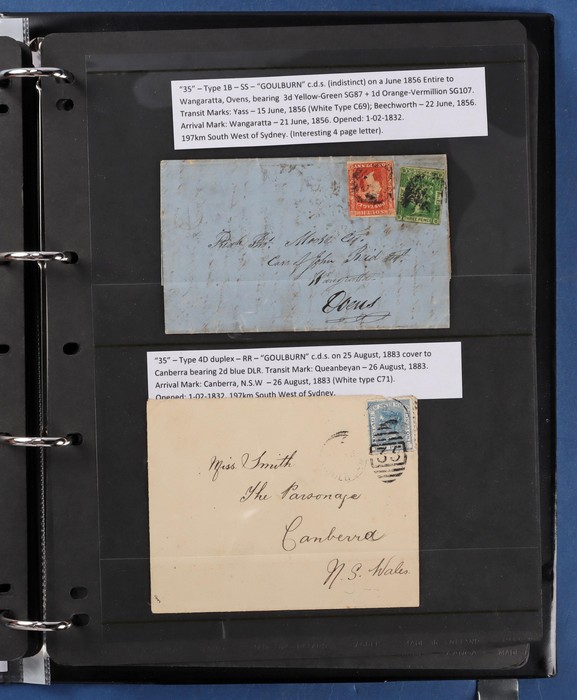 "35" – Type 1B – SS – "GOULBURN" c.d.s. (indistinct) on a June 1856 Entire to
Wangaratta, Ovens, bearing 3d Yellow-Green SG87 + 1d Orange-Vermillion SG107.
Transit Marks: Yass – 15 June, 1856 (White Type C69); Beechworth – 22 June, 1856.
Arrival Mark: Wangaratta – 21 June, 1856. Opened: 1-02-1832.
197km South West of Sydney. (Interesting 4 page letter).
THREE PENCE
Moore
Care of John
Ovens
"35" – Type 4D duplex – RR – "GOULBURN" c.d.s. on 25 August, 1883 cover to
Canberra bearing 2d blue DLR. Transit Mark: Queanbeyan – 26 August, 1883.
Arrival Mark: Canberra, N.S.W – 26 August, 1883 (White type C71).
Opened: 1-02-1832. 197km South West of Sydney.
35
Miss Smith
The Parsonage
Canberra
N. S. Wales